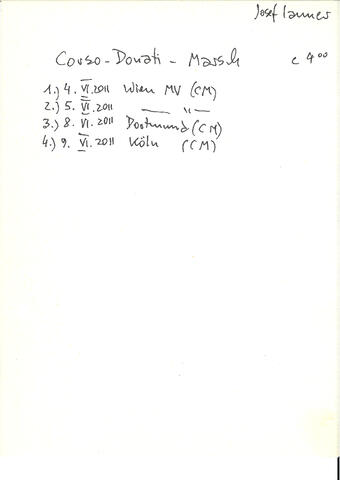 Josef Lanner
Corso-Donati-Marsch c 4⁰⁰
1.) 4. VI. 2011 Wien MV (CM)
2.) 5. VI. 2011 — " —
3.) 8. VI. 2011 Dortmund (CM)
4.) 9. VI. 2011 Köln (CM)